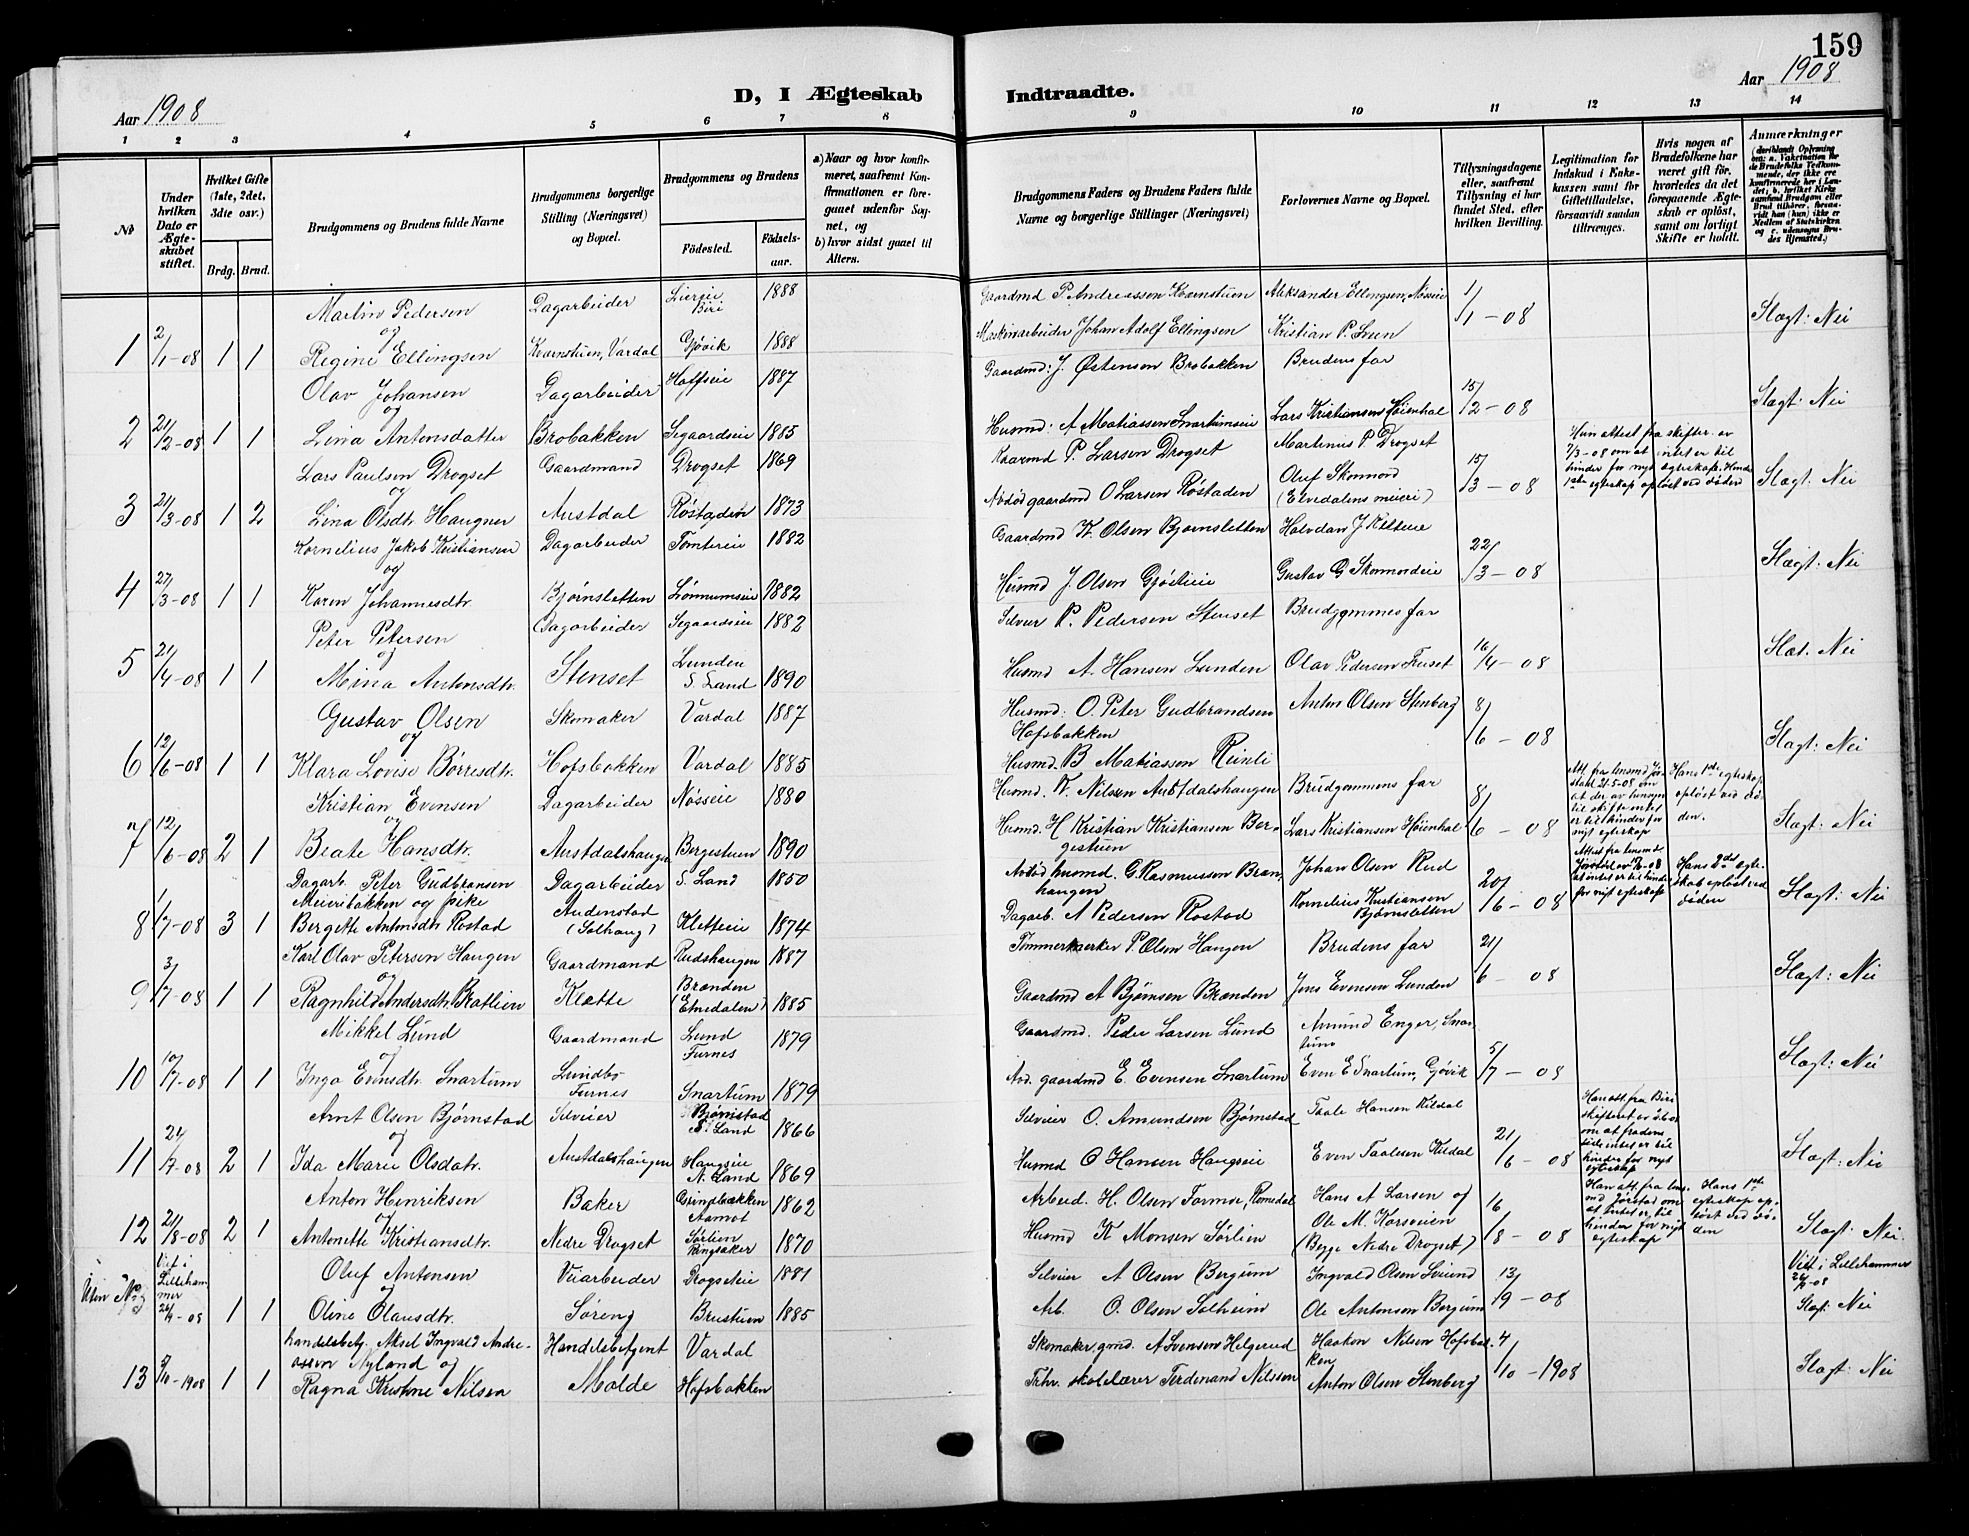 159
Aar 1908
D, I Ægteskab
Indtraadte.
Aar 1908
1 2 3 4 5 6 7 8 9 10 11 12 13 14
No
Under hvilken Dato er Ægteskabet stiftet.
Hvilket Gifte (1ste, 2det, 3die osv.)
Brdg. Brud.
Brudgommens og Brudens fulde Navne
Brudgommens borgerlige Stilling (Næringsvei) og Bopæl.
Brudgommens og Brudens
Födested.
Födselsaar.
a) Naar og hvor konfirmeret, saafremt Konfirmationen er foregaaet udenfor Sognet, og
b) hvor sidst gaaet til Alters.
Brudgommens Faders og Brudens Faders fulde Navne og borgerlige Stillinger (Næringsvei)
Forlovernes Navne og Bopæl.
Tillysningsdagene eller, saafremt Tillysning ei har fundet Sted, efter hvilken Bevilling.
Legitimation for Indskud i Enkekassen samt for Giftetilladelse, forsaavidt saadan tiltrænges.
Hvis nogen af Brudefolkene har været gift för, hvorledes da det foregaaende Ægteskab er oplöst, samt om lovligt Skifte er holdt.
Anmærkninger
Martin Pedersen Dagarbeider Biri 1888 Gaardmd P. Andreassen Kvernstuen Aleksander Ellingsen, Nøsseie
og
1 2/1-08 1 1 Regine Ellingsen Kvernstuen, Vardal Gjøvik 1888 Maskinarbeider Johan Adolf Ellingsen Kristian P. Sveen 1/1-08 Slægt: Nei
Olav Johansen Dagarbeider Hoffseie 1887 Gaardmd: J. Østenson Brobakken Brudens far
og
2 21/2-08 1 1 Lina Antonsdatter Brobakken Segaardseie 1885 Husmd: A Matiassen Snartumseie Lars Kristiansen Høienhal 15/2-08 Slægt: Nei
Lars Paulsen Drogset Gaardmand Drogset 1869 P. Larsen Drogset Martinus P. Drogset
og
3 21/3-08 1 2 Lina Olsdtr. Haugner Austdal Røstaden 1873 Avdød gaardmd O Larsen Røstaden Oluf Skonnord 15/3-08 Slægt: Nei
Hun attest fra skifter. av 7/3-08 om at intet er til hinder for nyt egteskap. Hendes 1ste egteskap opløst ved døden
Kornelius Jakob Kristiansen Dagarbeider Tomtereie 1882 Gaardmd K. Olsen Bjørnsletten Halvdan J Kletteie
og
4 27/3-08 1 1 Karen Johannesdtr. Bjørnsletten Lønnumseie 1882 Husmd J. Olsen Gjøstieie Gustav G. Skonnordeie 22/3-08 Slægt: Nei
Peter Petersen Dagarbeider Segaardseie 1882 Selveier P. Pedersen Stenset Brudgommes far
og
5 21/4-08 1 1 Mina Antonsdtr. Stenset Lunden S. Land 1890 Husmd A. Hansen Lunden Olav Pedersen Fruset 16/4-08 Slæt. Nei
Gustav Olsen Skomaker Vardal 1887 Husmd: O. Peter Gudbrandsen Hofsbakken Anton Olsen Stenberg
og
6 12/6-08 1 1 Klara Lovise Børresdtr. Hofsbakken Vardal 1885 Husmd. B Matiassen Reinli 8/6-08 Slægt: Nei
Kristian Evensen Dagarbeider Nøsseie 1880 Husmd. Nilsen Austdalshaugen Brudgommens far
og
7 12/6-08 2 1 Beate Hansdtr. Austdalshaugen Bergestuen 1890 Husmd. H Kristian Kristiansen Bergestuen Lars Kristiansen Høienhal 8/6-08 Slagt: Nei
Hans 1ste egteskap opløst ved døden.
Dagarb. Peter Gudbransen Dagarbeider S. Land 1850 Avdød husmd. G. Rasmussen Brænhaugen Johan Olsen Rud
Meieribakken og pike
8 1/7-08 3 1 Bergette Antonsdtr. Rostad Audenstad (Solhaug) Kletteie 1874 Dagarb. A Pedersen Rostad Kornelius Kristiansen Bjørnsletten 20/6-08 Slagt: Nei
Hans 2det egteskab opløst ved døden
Karl Olav Petersen Haugen Gaardmand Rudshaugen 1887 Tømmermerker P. Olsen Haugen Brudens far
og
9 3/7-08 1 1 Ragnhild Andersdtr. Bratlien Klætte Brænden (Etnedalen) 1885 Gaardmd A Bjørnsen Brænden Jens Evensen Lunden 21/6-08 Slagt: Nei
Mikkel Lund Gaardmand Lund Furnes 1879 Gaardmd. Peder Larsen Lund Amund Enger, Snartum
og
10 10/7-08 1 1 Inga Evensdtr. Snartum Lundbo Furnes Snartum 1879 Avd. gaardmd E. Evensen Snartum Even E Snartum, Gjøvik 5/7-08 Slagt: Nei
Arnt Olsen Bjørnstad Selveier Bjørnstad S. Land 1866 Selveier O. Amundsen Bjørnstad Taale Hansen Kildal
og
11 21/7-08 2 1 Ida Marie Olsdatr. Austdalshaugen Haugseie N. Land 1869 Husmd O Hansen Haugseie Even Taalsen Kildal 21/6-08 Slagt: Nei
Anton Henriksen Baker Grindbækken Aamot 1862 Arbeid. H. Olsen Tormoe, Romedal Hans A Larsen og
og
12 21/8-08 2 1 Antonette Kristiansdtr. Nedre Drogset Sørlien Ringsaker 1870 Husmd K Monsen Sørlien Ole M. Korsveien (Begge Nedre Drogset) 16/8-08 Slagt: Nei.
Han att. fra lensmd Jørstad om at intet er til hinder for nyt egteskap
Hans 1ste egteskap opløst ved døden
Uten No. Viet i Lillehammer
Oluf Antonsen Veiarbeider Drogseteie 1881 Selveier A Olsen Bergum Ingvald Olsen Sveund 13/9-08 Viet i Lillehammer
og
1 1 Oline Olausdtr. Søreng Brustuen 1885 Arb. O. Olsen Solheim Ole Antonson Bergum Slægt: Nei
handelsbetj. Aksel Ingvald Andreassen Nyland og Handelsbetjent Vardal Skomaker, gmd. A Svensen Helgerud Haakon Nilsen Hofsbakken
13 9/10-1908 1 1 Ragna Kristine Nilsen Molde Hofsbakken Fhr. skolelærer Ferdinand Nilssen Anton Olsen Stenberg 4/10-1908 Slagt: Nei